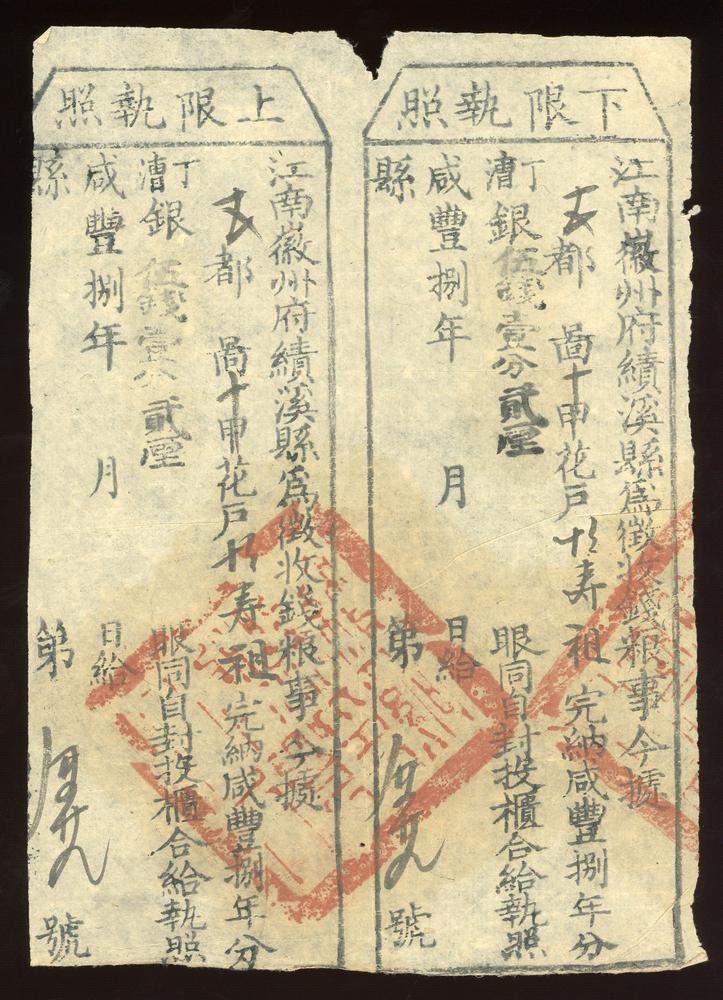 下限執照
江南徽州府績溪縣為徵收錢粮事今據
五都 啚十甲花戶 寿祖完納咸豐捌年分
丁漕銀伍錢壹分貳厘 眼同自封投櫃合給執照
咸豐捌年 月 日給
縣 第 號
上限執照
江南徽州府績溪縣為徵收錢粮事今據
五都 啚十甲花戶 寿祖完納咸豐捌年分
丁漕銀伍錢壹分貳厘 眼同自封投櫃合給執照
咸豐捌年 月 日給
縣 第 號